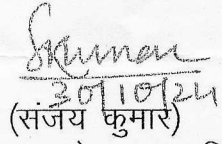 SKumar
30/10/24
(संजय कुमार)